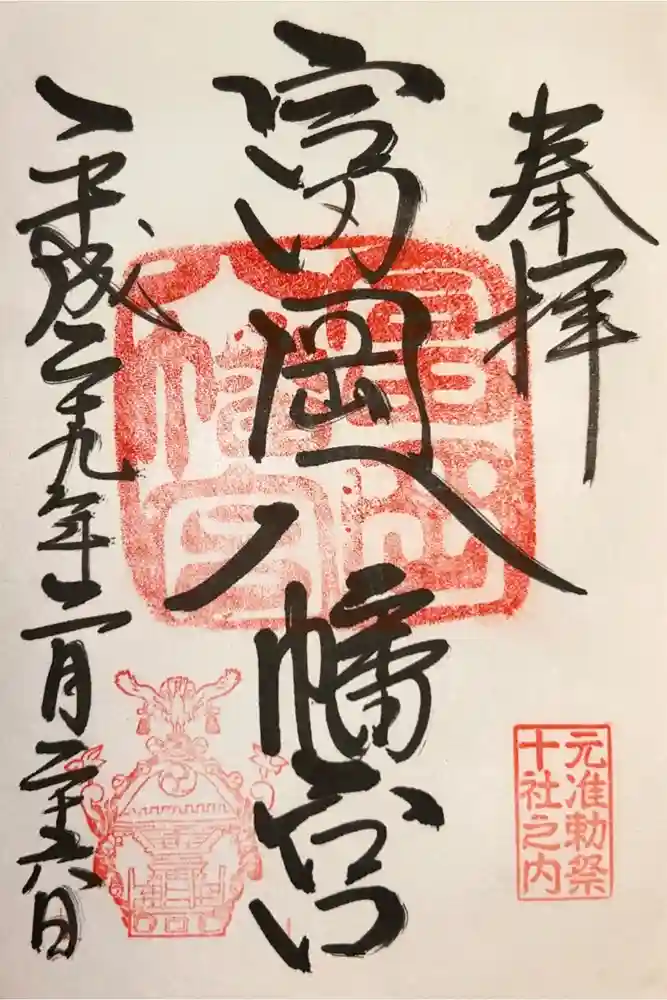 奉拝
富岡八幡宮
平成二十九年二月二十六日
富岡
八幡宮
元准勅祭
十社之内